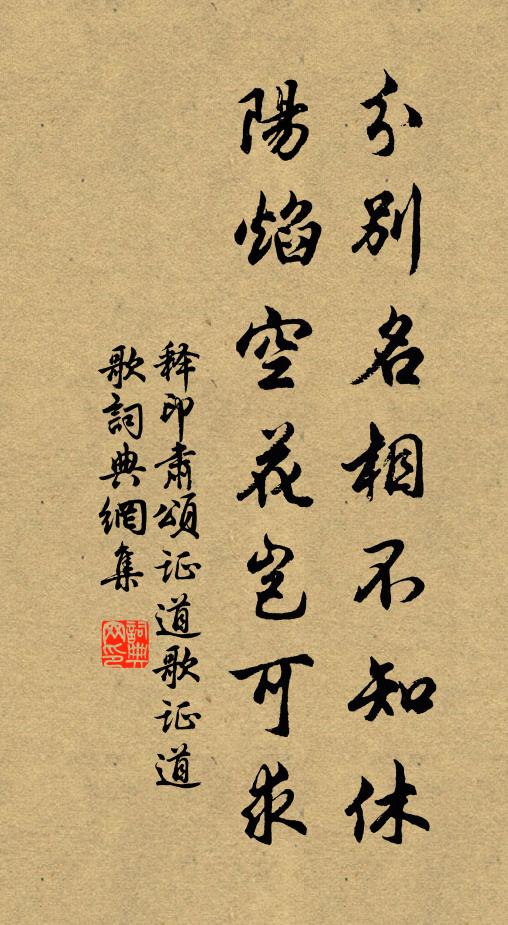 分別名相不知休
陽焰空花岂可求
释印肅頌证道歌证道
歌詞典網集
詞典
网印